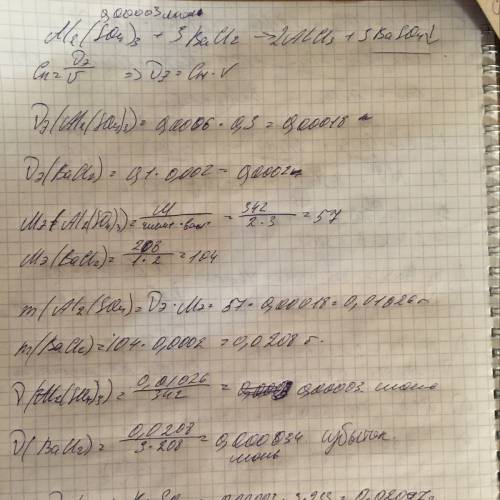 0,00003 моль
Al₂(SO₄)₃ + 3BaCl₂ → 2AlCl₃ + 3BaSO₄↓
Cн = νэ/V ⇒ νэ = Cн·V
νэ(Al₂(SO₄)₃) = 0,0006 · 0,3 = 0,00018
νэ(BaCl₂) = 0,1 · 0,002 = 0,0002
Mэ(Al₂(SO₄)₃) = M/ = 342/2·3 = 57
Mэ(BaCl₂) = 208/1·2 = 104
m(Al₂(SO₄) = νэ · Mэ = 57 · 0,00018 = 0,01026 г
m(BaCl₂) = 104 · 0,0002 = 0,0208 г.
ν(Al₂(SO₄)₃) = 0,01026/342 = 0,00003 моль
ν(BaCl₂) = 0,0208/3·208 = 0,000034 избыток
моль